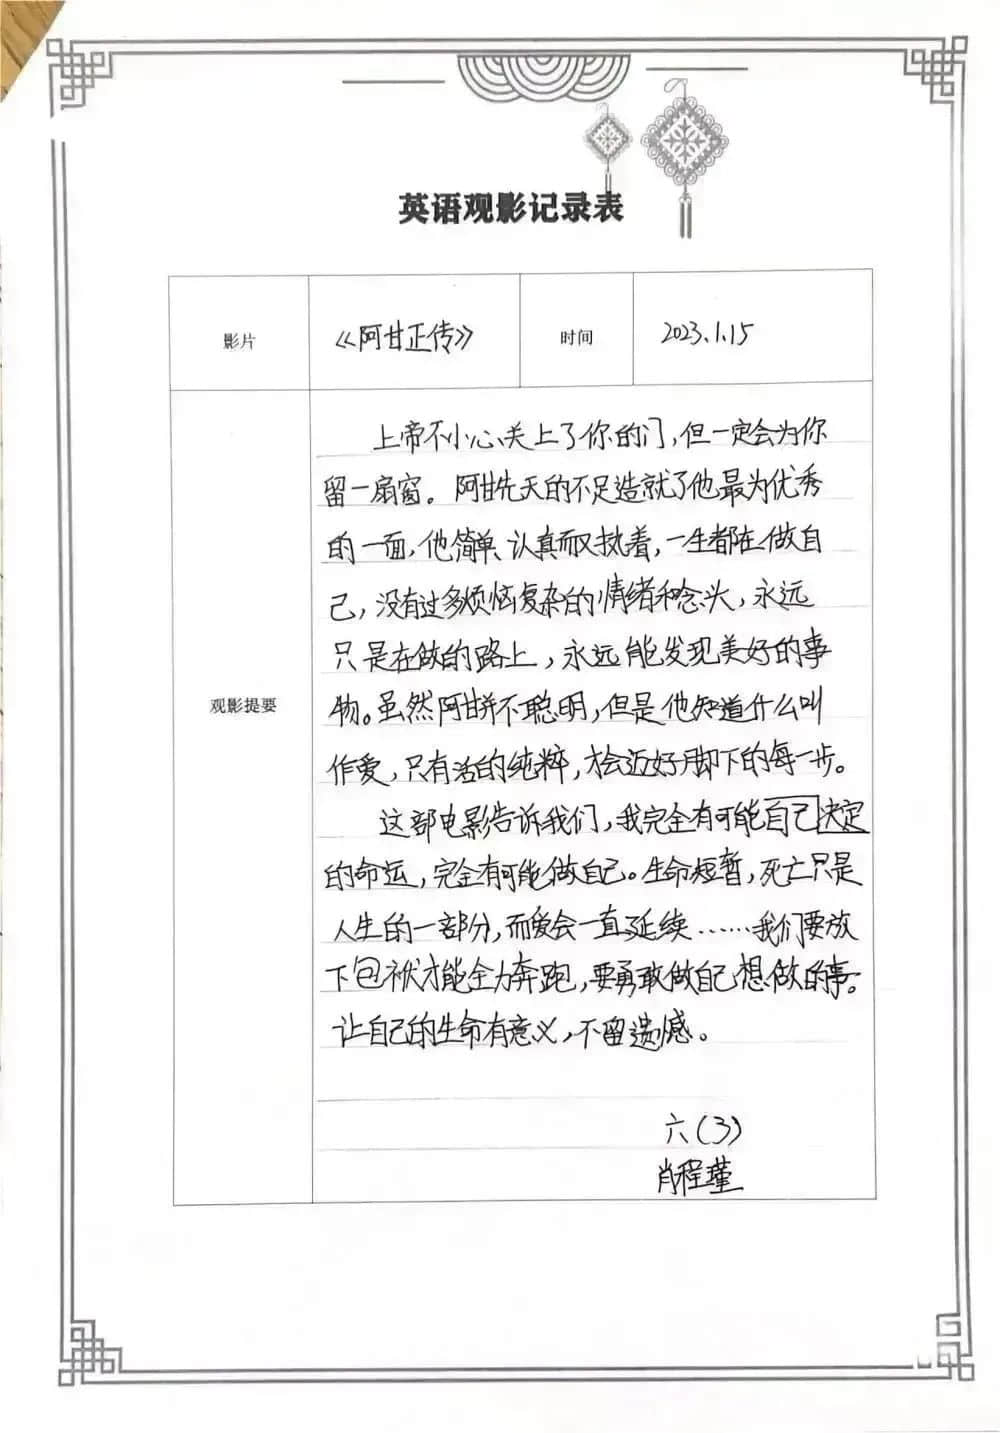 英语观影记录表
影片 《阿甘正传》 时间 2023.1.15
观影提要
上帝不小心关上了你的门，但一定会为你
留一扇窗。阿甘先天的不足造就了他最为优秀
的一面，他简单、认真而又执着，一生都在做自
己，没有过多烦恼复杂的情绪和念头，永远
只是在做的路上，永远能发现美好的事
物。虽然阿甘并不聪明，但是他知道什么叫
作爱，只有活的纯粹，才会迈好脚下的每一步。
这部电影告诉我们，我完全有可能自己决定
的命运，完全有可能做自己。生命短暂，死亡只是
人生的一部分，而爱会一直延续……我们要放
下包袱才能全力奔跑，要勇敢做自己想做的事。
让自己的生命有意义，不留遗憾。
六（3）
肖程瑾